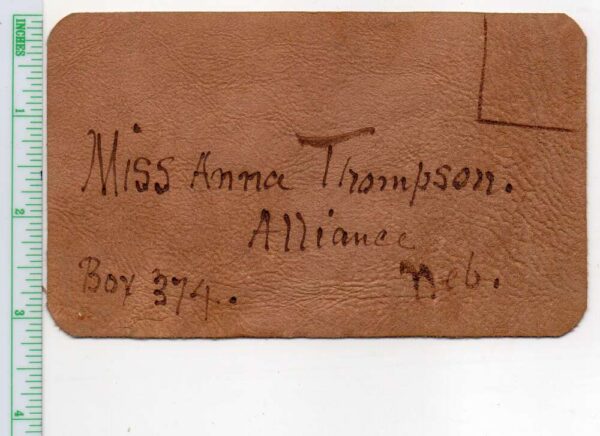 INCHES
1
2
3
4
Miss Anna Thompson.
Alliance
Neb.
Box 374.